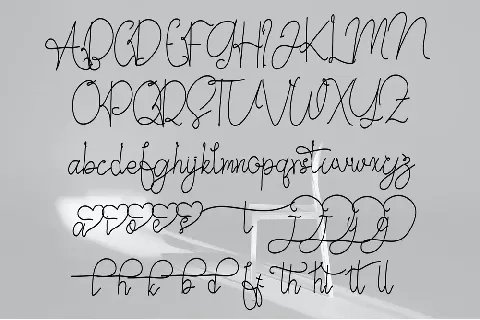 ABCDEFGHIJKLMN
OPQRSTUVWXYZ
abcdefghijklmnopqrstuvwxyz
a r o e s t j f y g
l h k b d ff th ht tt ll